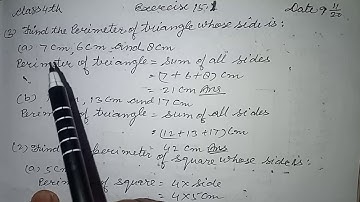 Class 4th Exercise 15.1 Date 9 11/20
(1) Find the Perimeter of triangle whose side is:
(a) 7cm, 6cm and 8cm
Perimeter of triangle = sum of all sides
= (7+6+8) cm
= 21 cm Ans
(b) 13 cm and 17 cm
Perimeter of triangle = sum of all sides
= (12+13+17) cm
= 42 cm Ans
(2) Find perimeter of square whose side is:
(a) 5cm
Perimeter of square = 4 × side
= 4 × 5 cm